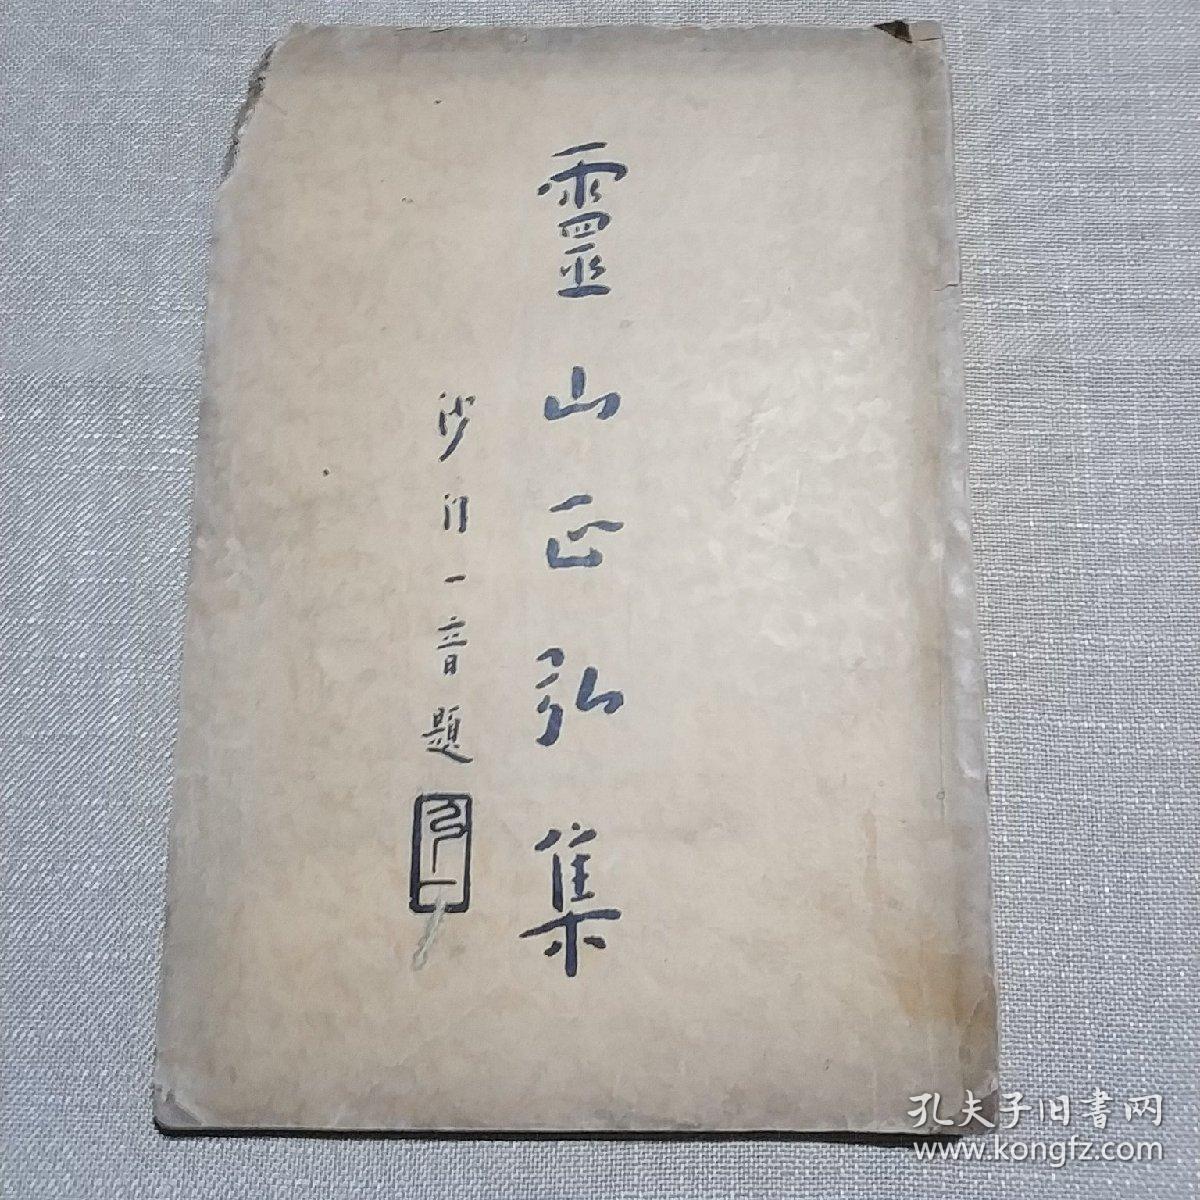 靈山正弘集
沙門一音題
孔夫子旧書网
www.kongfz.com